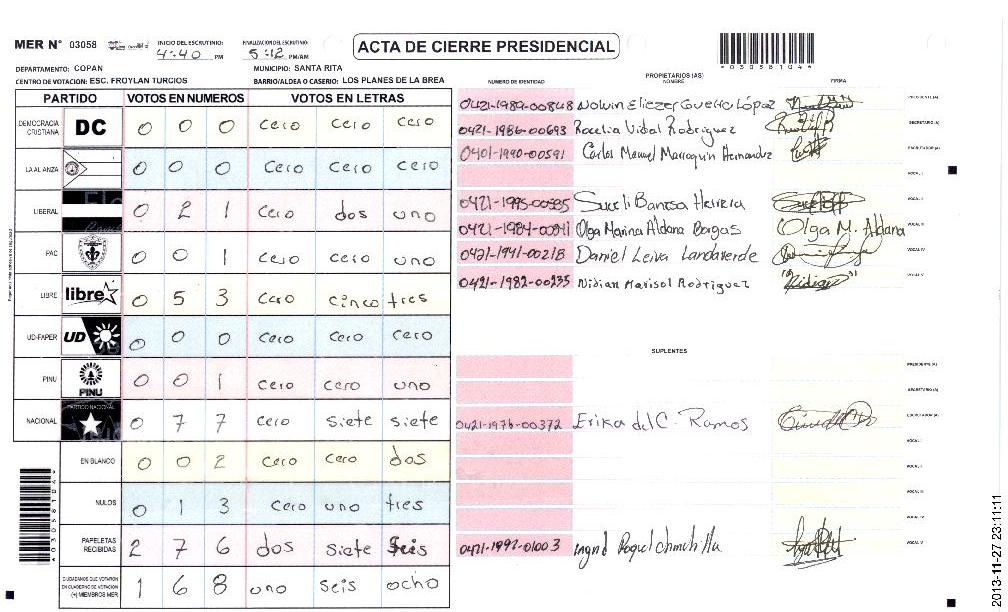 MER N° 03058 INICIO DEL ESCRUTINIO: 4:40 PM FINALIZACIÓN DEL ESCRUTINIO: 5:12 PM/AM ACTA DE CIERRE PRESIDENCIAL
DEPARTAMENTO: COPAN MUNICIPIO: SANTA RITA
CENTRO DE VOTACION: ESC. FROYLAN TURCIOS BARRIO/ALDEA O CASERIO: LOS PLANES DE LA BREA
PARTIDO VOTOS EN NUMEROS VOTOS EN LETRAS
DEMOCRACIA CRISTIANA DC 0 0 0 cero cero cero
LA ALIANZA 0 0 0 cero cero cero
LIBERAL 0 2 1 cero dos uno
PAC 0 0 1 cero cero uno
LIBRE libre 0 5 3 cero cinco tres
UD-FAPER UD 0 0 0 cero cero cero
PINU PINU 0 0 1 cero cero uno
NACIONAL PARTIDO NACIONAL 0 7 7 cero siete siete
EN BLANCO 0 0 2 cero cero dos
NULOS 0 1 3 cero uno tres
PAPELETAS RECIBIDAS 2 7 6 dos siete seis
CIUDADANOS QUE VOTARON EN CUADERNO DE VOTACION (+) MIEMBROS MER 1 6 8 uno seis ocho
NUMERO DE IDENTIDAD PROPIETARIOS (AS) NOMBRE FIRMA
0421-1989-00848 López PRESIDENTE (A)
0421-1986-00693 Rocelia Vidal Rodriguez SECRETARIO (A)
0401-1990-00591 Carlos Manuel Marroquin Hernandez ESCRUTADOR (A)
VOCAL I
Suceli Banosa Herrera VOCAL II
Olga Marina Aldana Borgas Olga M. Aldana VOCAL III
0421-1941-00218 Daniel Leiva Landaverde VOCAL IV
0421-1982-00235 Nidian Marisol Rodriguez VOCAL V
SUPLENTES
PRESIDENTE (A)
SECRETARIO (A)
0421-1976-00372 Erika del C. Ramos ESCRUTADOR (A)
VOCAL I
VOCAL II
VOCAL III
VOCAL IV
0421-1992-01003 Ingrid VOCAL V
2013-11-27 23:11:11